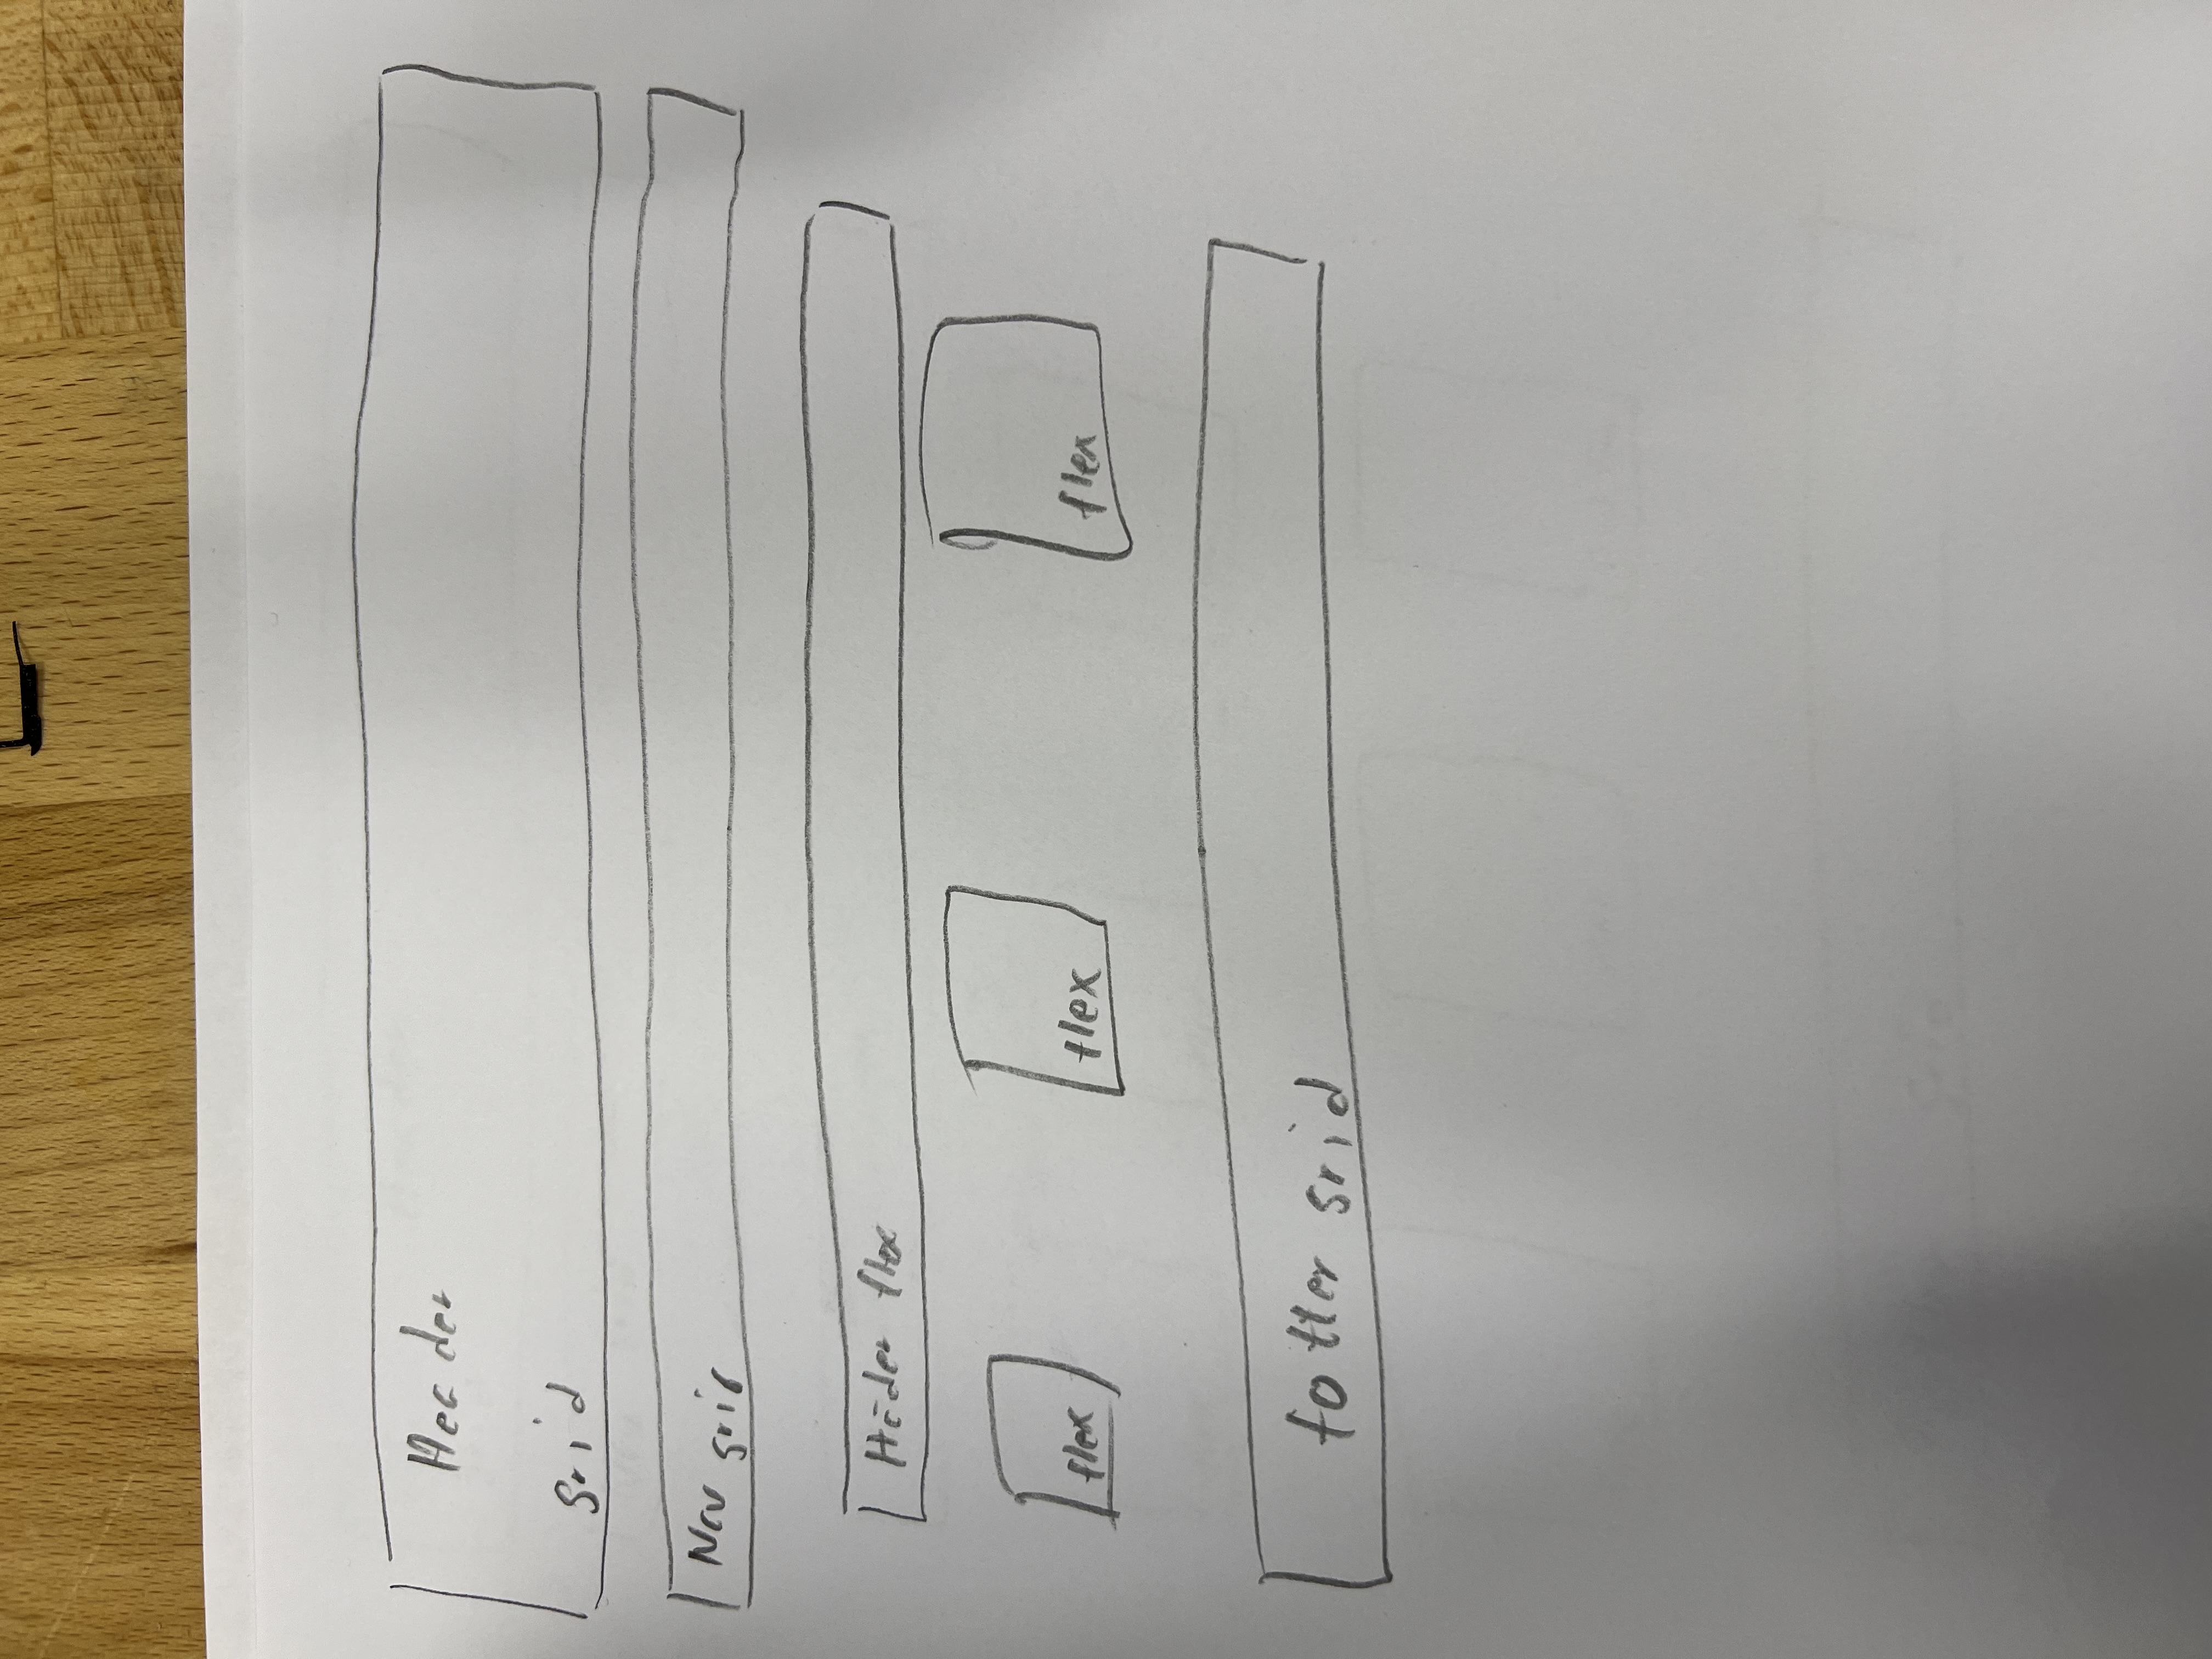 Header
grid
Nav grid
Heder flex
flex flex flex
fotter grid